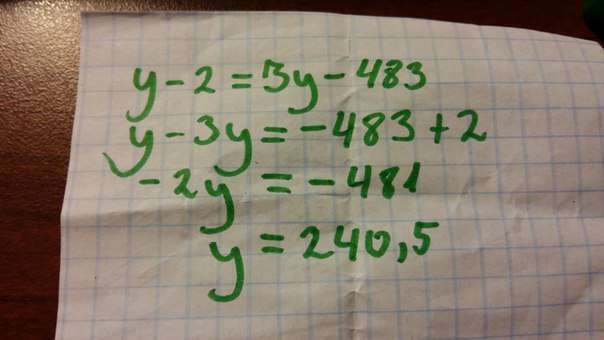 y - 2 = 3y - 483
y - 3y = - 483 + 2
- 2y = - 481
y = 240,5